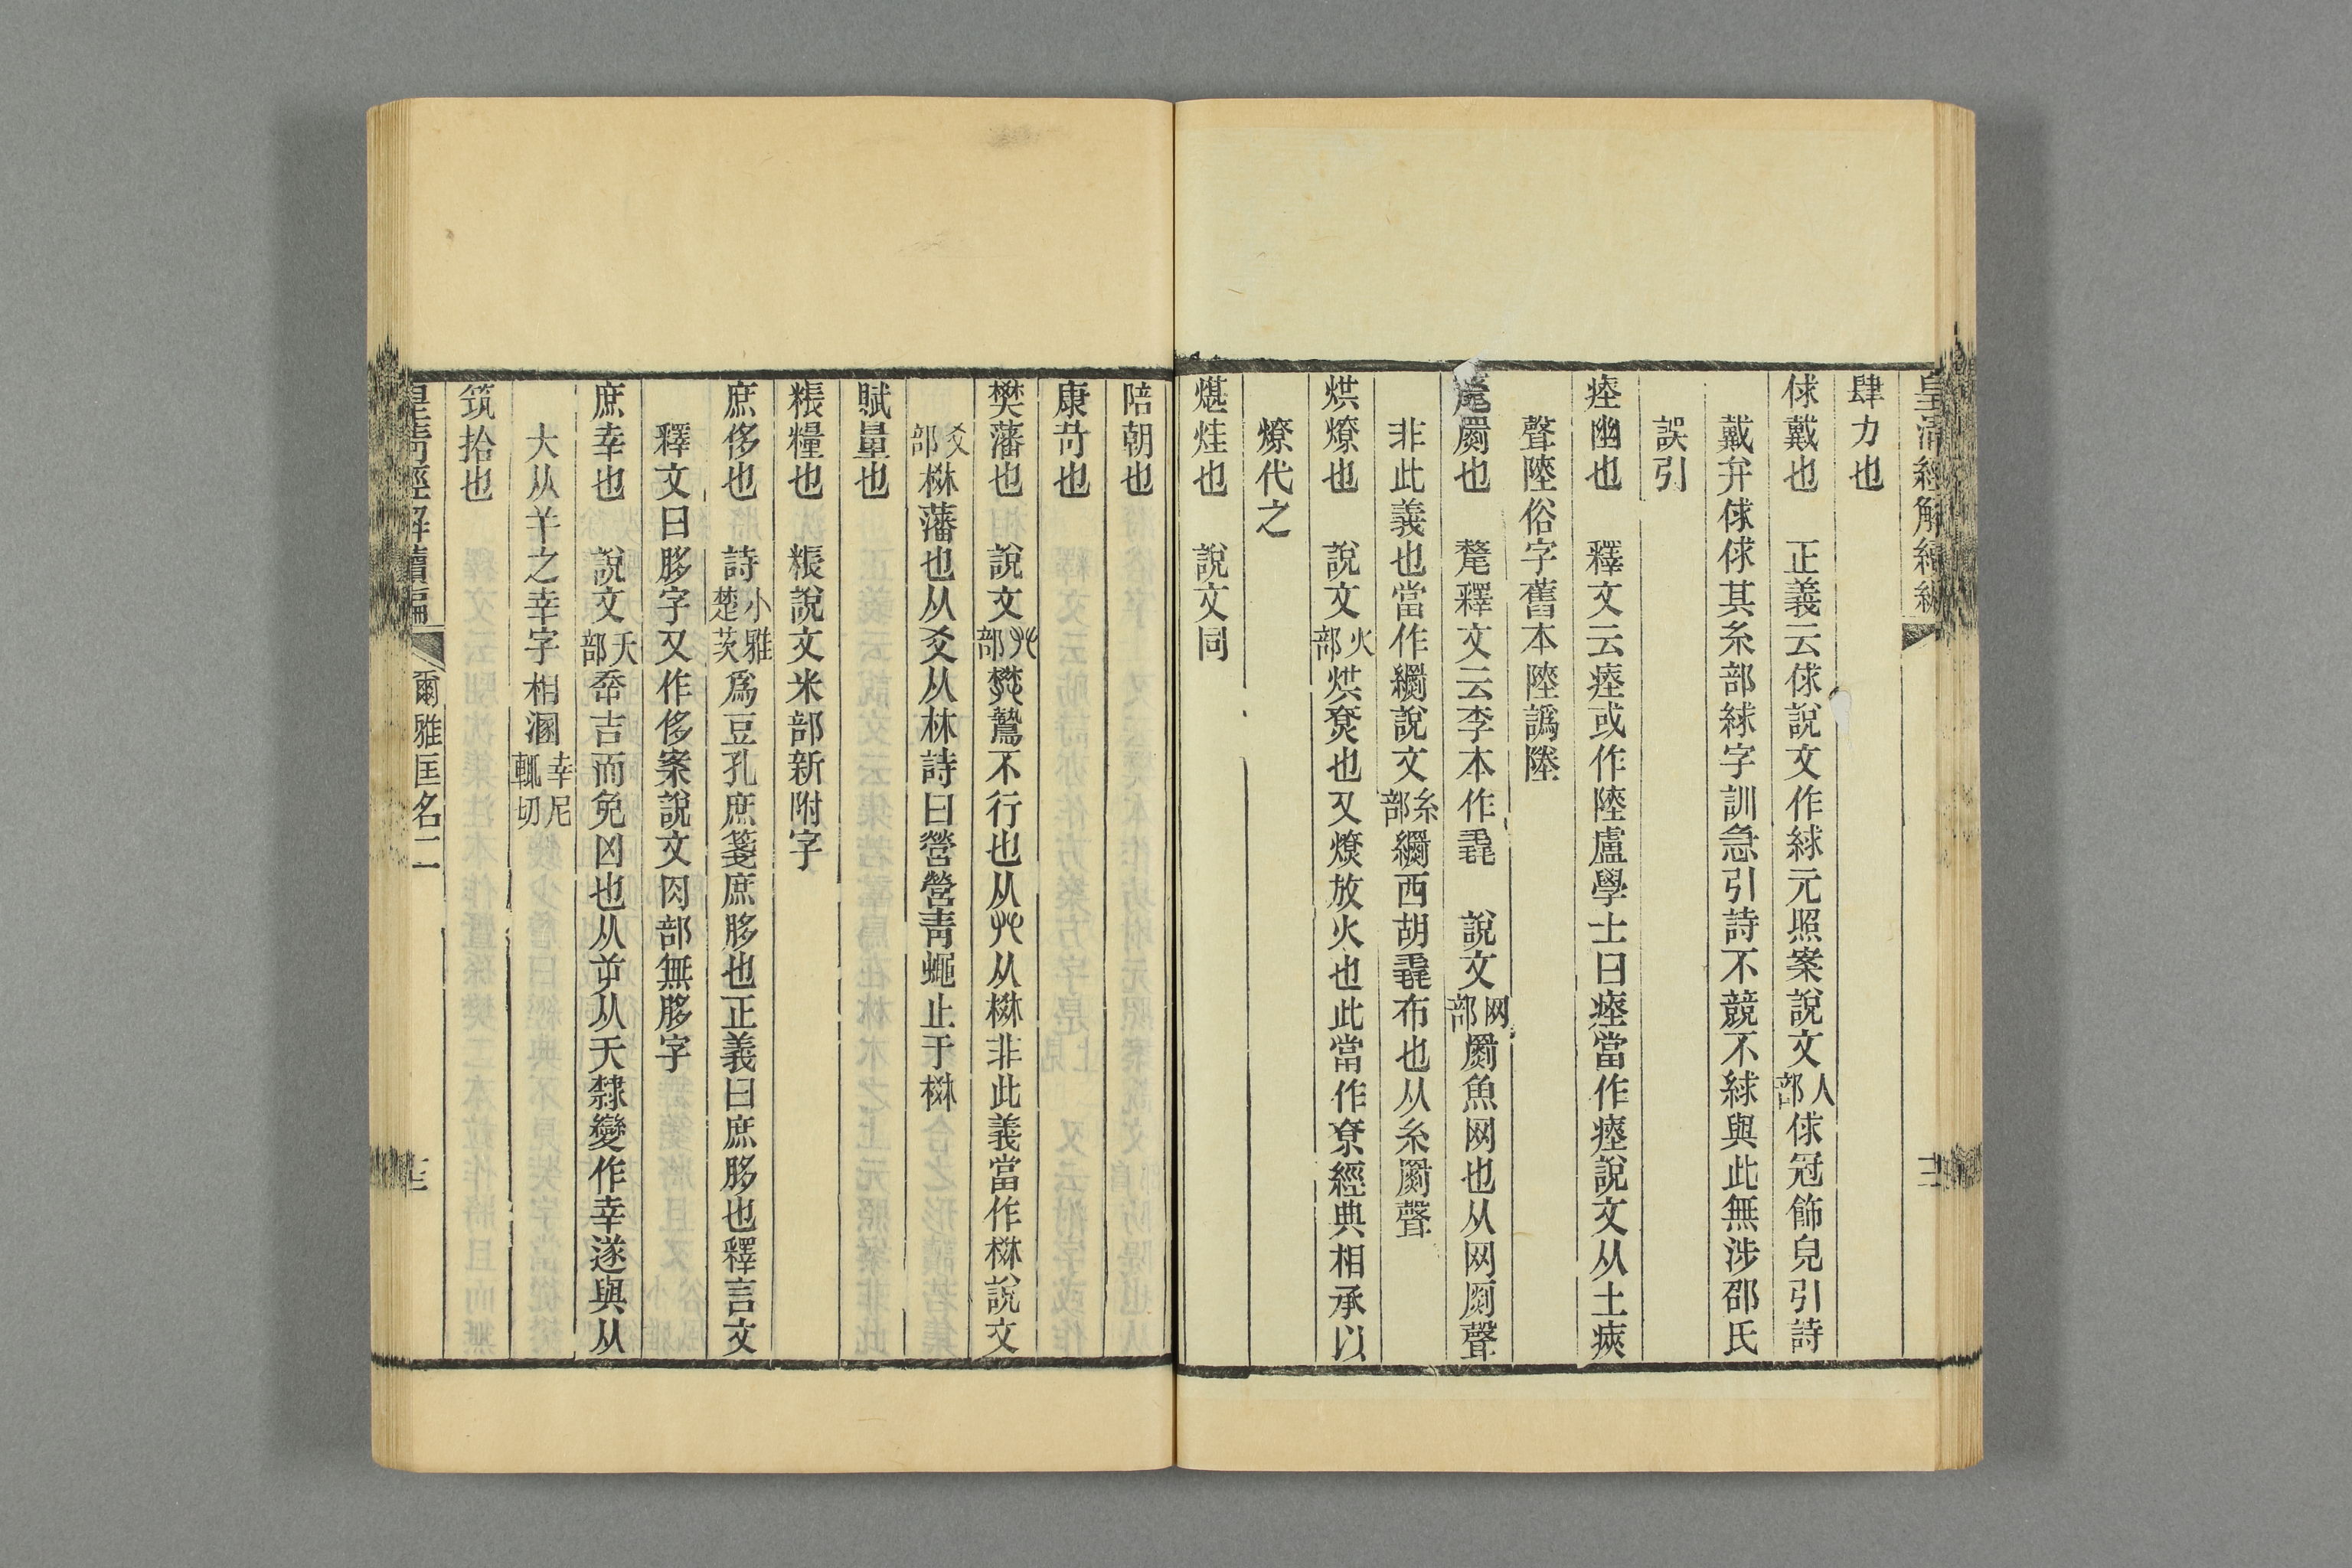 皇清經解續編
肆力也
俅戴也　正義云俅說文作絿元照案說文人部俅冠飾皃引詩
戴弁俅俅其糸部絿字訓急引詩不競不絿與此無涉邵氏
誤引
瘞幽也　釋文云瘞或作𡍨盧學士曰瘞當作瘞說文从土㾜
聲𡍨俗字舊本𡍨譌
氂罽也　氂釋文云李本作毳　說文网部罽魚网也从网㓹聲
非此義也當作𦇧說文糸部𦇧西胡毳布也从糸罽聲
烘燎也　說文火部烘尞也又燎放火也此當作尞經典相承以
燎代之
煁烓也　說文同
陪朝也
康苛也
樊藩也　說文𠬜部樊鷙不行也从𠬜从棥非此義當作棥說文
爻部棥藩也从爻从林詩曰營營青蠅止于棥
賦量也
粻糧也　粻說文米部新附字
庶侈也　詩小雅楚茨爲豆孔庶箋庶䏧也正義曰庶䏧也釋言文
釋文曰䏧字又作侈案說文肉部無䏧字
庶幸也　說文夭部㚔吉而免凶也从屰从夭隸變作幸遂與从
大从𢆉之幸字相溷幸尼輒切
筑拾也
皇清經解續編　爾雅匡名二　十三